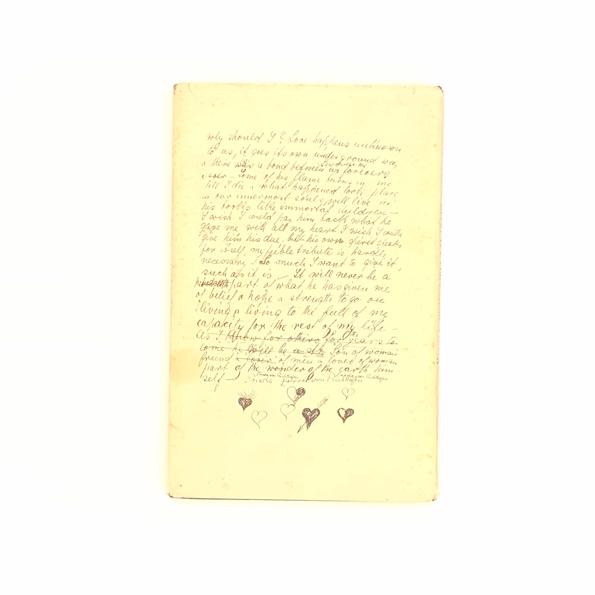 why should I? Love happens unknown
to us, it goes its own underground way
& there was a bond between us forever &
ever - Some of his flame burns in me
till I die & what happened took place
in our innermost souls, will live in
his books like immortal children -
I wish I could pay him back what he
gave me with all my heart I wish I could
give him his due, but his own speaks
for itself, my feeble tribute is hardly
necessary I so much I want to give it,
such as it is - It will never be a
part of what he has given me
of belief & hope & strength to go on
living & living to the full of my
capacity for the rest of my life -
As I know for others for years to
come he will be a Son of woman
friend & lover of men & loved of woman
part of the wonder of the earth him
self